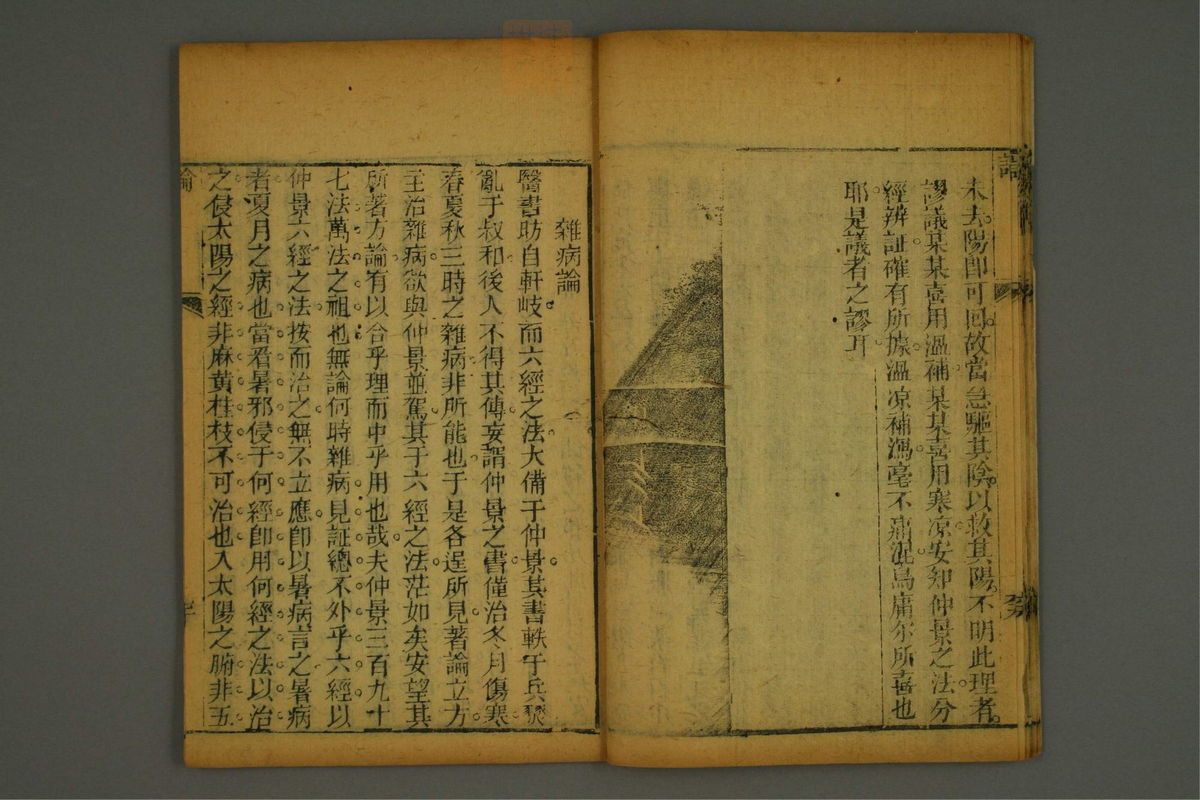 未去陽卽可回故當急驅其陰以救其陽不明此理者
謬議某某喜用溫補某某喜用寒凉安知仲景之法分
經辨証確有所據溫凉補瀉毫不肅混烏庸尓所喜也
耶是議者之謬耳
雜病論
醫書昉自軒岐而六經之法大備于仲景其書軼于兵燹
亂于叔和後人不得其傳妄謂仲景之書僅治冬月傷寒
春夏秋三時之雜病非所能也于是各逞所見著論立方
主治雜病欲與仲景並駕其于六經之法茫如矣安望其
所著方論有以合乎理而中乎用也哉夫仲景三百九十
七法萬法之祖也無論何時雜病見証總不外乎六經以
仲景六經之法按而治之無不立應卽以暑病言之暑病
者夏月之病也當看暑邪侵于何經卽用何經之法以治
之侵太陽之經非麻黃桂枝不可治也入太陽之腑非五
論